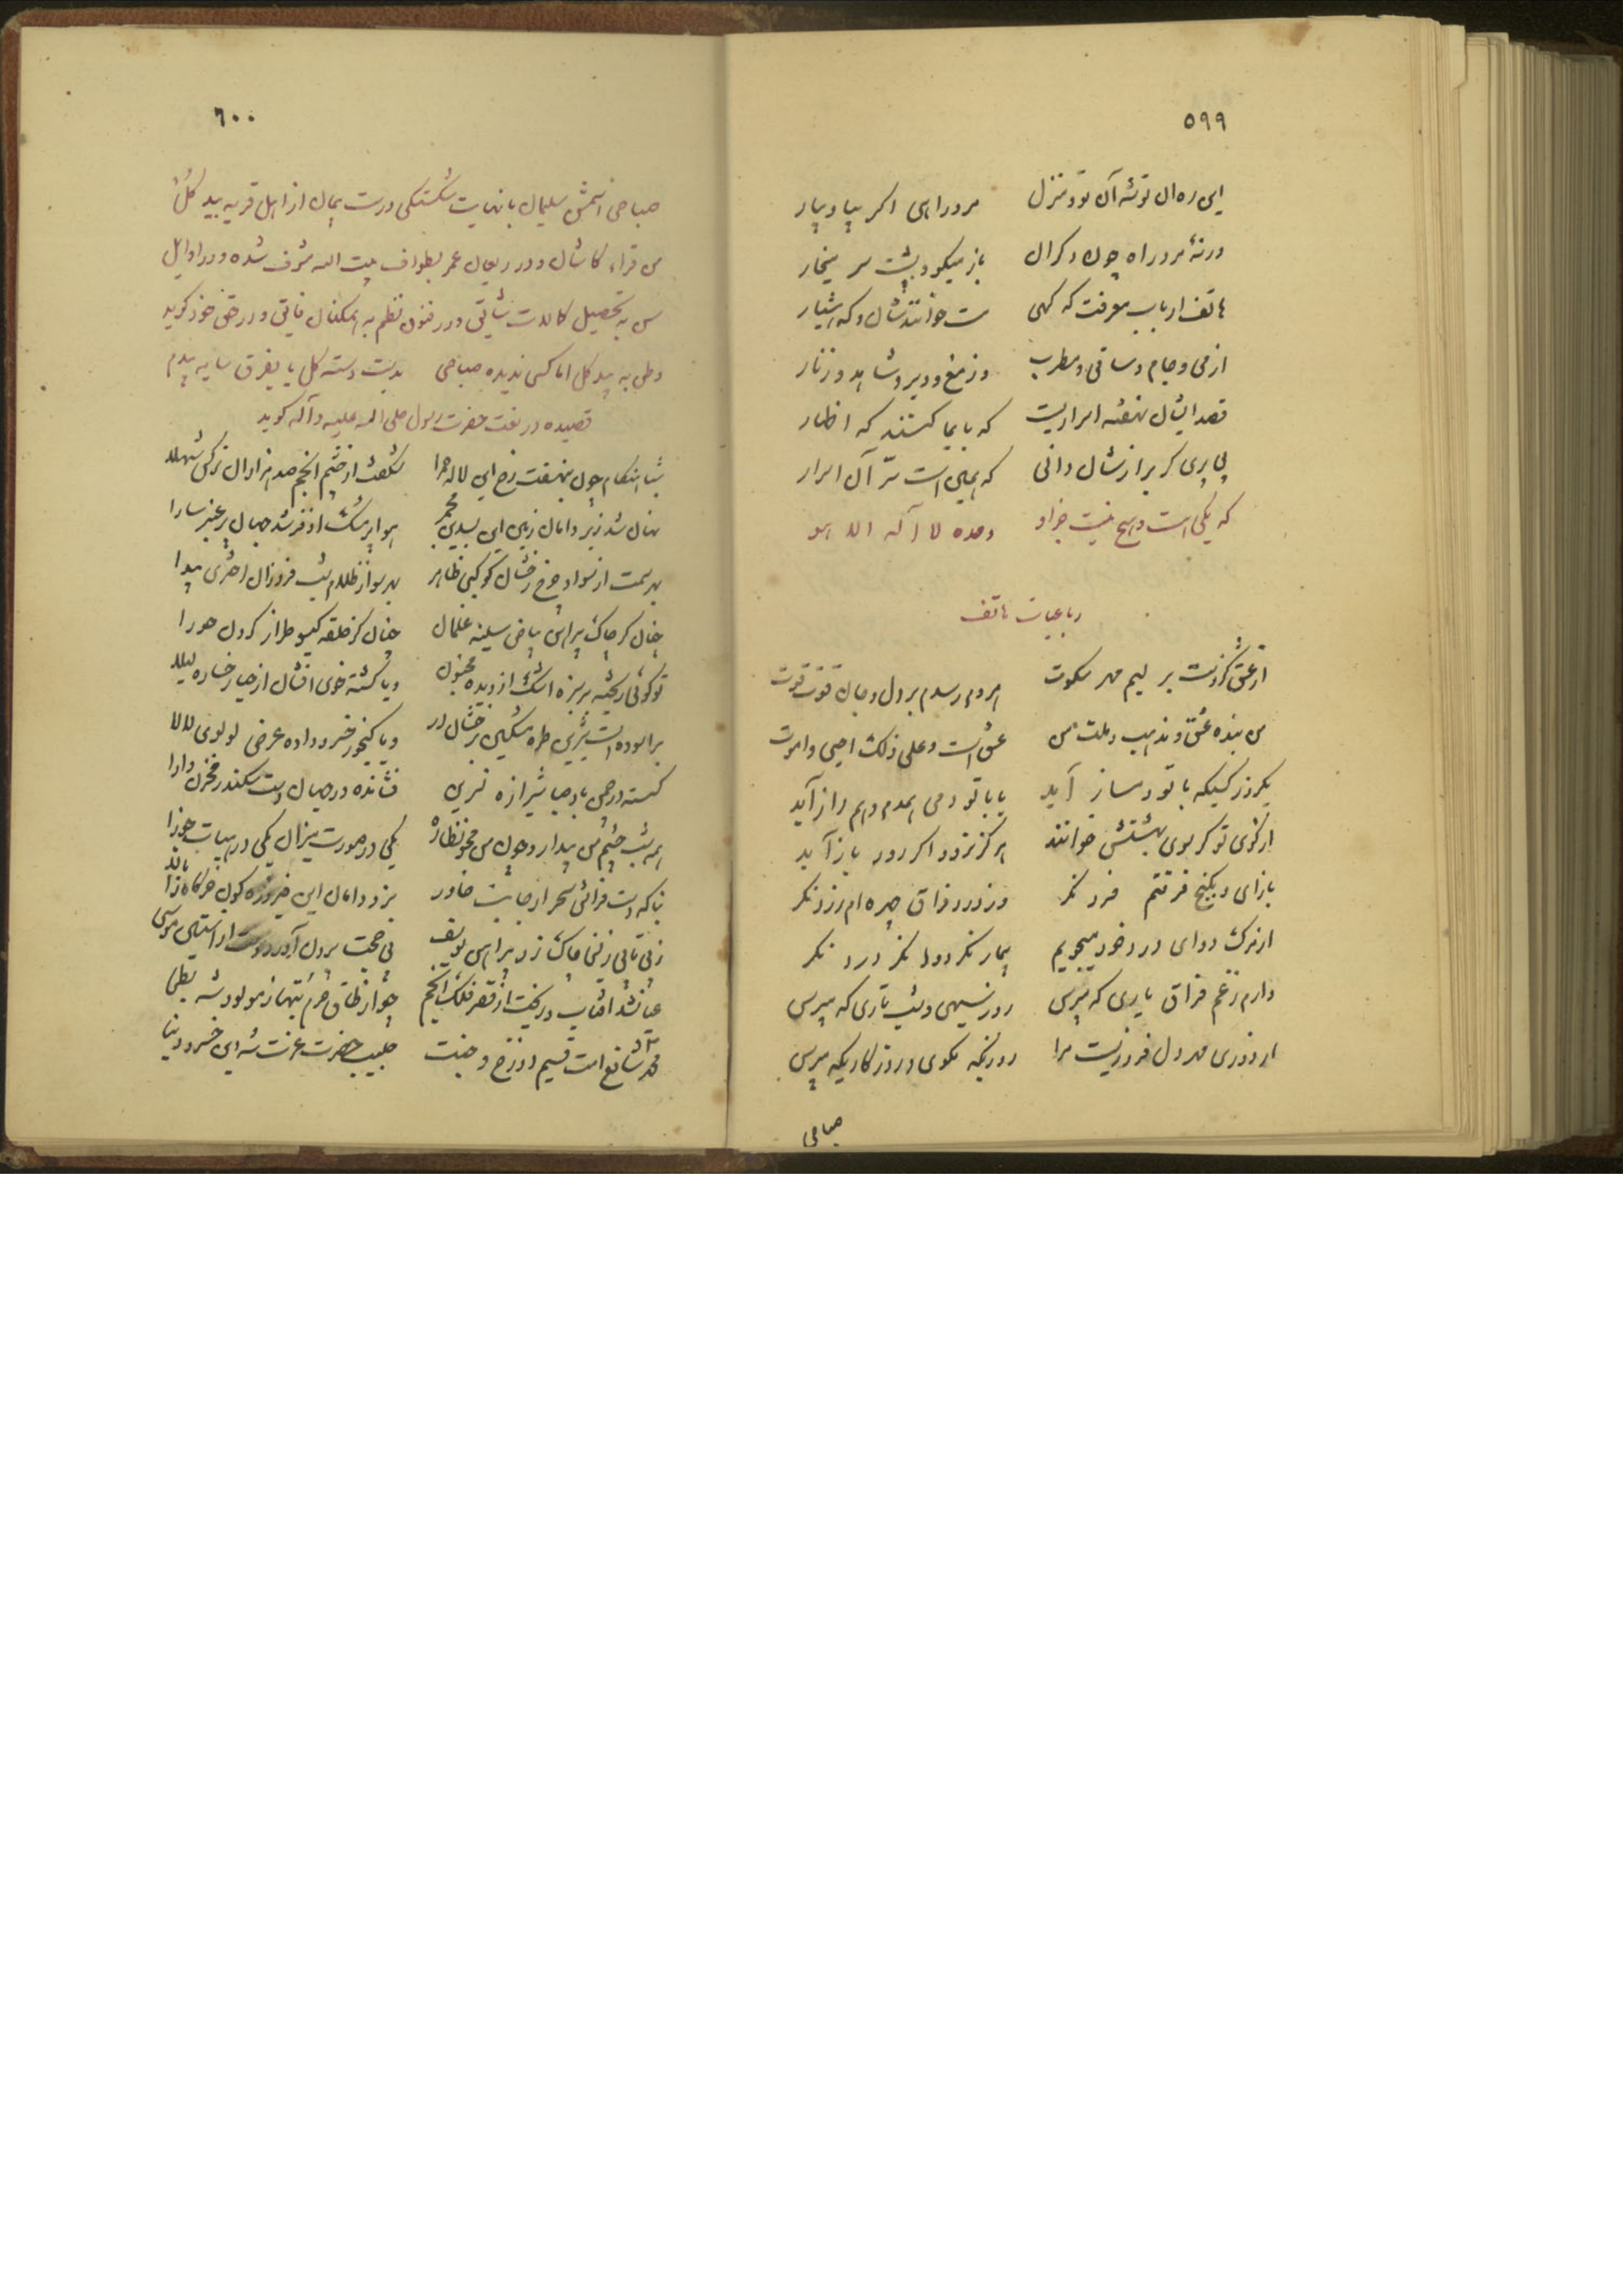 ٥٩٩
این ره آن توشه آن تو و منزل مرد راهی اگر بیا و بیار
ورنهٔ مرد راه چون دگران یار میگو و پشت سر میخار
هاتف ارباب معرفت که گهی مست خوانندشان و که هشیار
از می و جام و ساقی و مطرب وز مغ و دیر و شاهد و زنار
قصد ایشان نهفته اسراریست که بایما کنند که اظهار
پی بری گر برازشان دانی که همین است سرّ آن اسرار
که یکی است و هیچ نیست جز او وحده لا آله الا هو
رباعیات هاتف
از عشق کزوست بر لبم مهر سکوت هر دم رسدم بر دل و جان قوت و قوت
من بنده عشق و مذهب و ملت من عشق است و علی ذلک احیی و اموت
یکروز کسیکه با تو دمساز آید یا با تو دمی همدم و همراز آید
از کوی تو گر سوی بهشتش خوانند هرگز نرود اگر رود باز آید
باز آی و بکنج فرقتم فرد نگر وز درد فراق چهره ام زرد نگر
از مرگ دوای درد خود میجویم بیمار نگر دوا نگر درد نگر
دارم ز غم فراق یاری که مپرس روز سیهی و شب تاری که مپرس
از دوری مهر دل فروزیست مرا روزیکه مگوی و روزگاریکه مپرس
صباحی
٦٠٠
صباحی اسمش سلیمان با نهایت شکستگی درست پیمان از اهل قریه بیدگل
من قراء کاشان و در ریعان عمر بطواف بیت الله مشرف شده و در اوایل
سن به تحصیل کمالات شائق و در فنون نظم به همکنان فایق و در حق خود گوید
وطن به بیدگل اما کسی ندیده صباحی بدست دسته گل یا بفرق سایه بیدم
قصیده در نعت حضرت رسول صلی الله علیه و آله گوید
شباهنگام چون بنهفت رخ این لاله حمرا شکفت از چشم انجم صد هزاران نرگس شهلا
نهان شد زیر دامان زمین این بسدین مجمر هوا پر مشک اذفر شد جهان پر عنبر سارا
بهر سمت از سواد چرخ رخشان کوکبی ظاهر بهر سو از ظلام شب فروزان اختری پیدا
چنان کز چاک پیراهن بیاض سینه غلمان چنان کز حلقه گیسو طراز گردن حورا
تو گوئی ریخته بر سبزه اشک از دیده مجنون و یا گشته خوی افشان از حیا رخساره لیلا
و یا گنجور خسرو داده عرض لولوی لالا
گسسته در چمن باد صبا شیرازه نسرین فشانده در جهان دست سکندر مخزن دارا
همه شب چشم من بیدار و چون من محو نظاره یکی در صورت میزان یکی در هیات جوزا
بناگه دست فراش سحر از جانب خاور بزد دامان این فیروزه گون خرگاه را بالا
ز بی تابی زلیخا چاک زد پیراهن یوسف پی حجت برون آورد دست از استین موسی
عیان شد آفتاب و ریخت از قصر فلک انجم چو از طاق حرم بتها ز مولود شه بطحا
محمد شافع امت قسیم دوزخ و جنت حبیب حضرت عزت شه دین خسرو دنیا